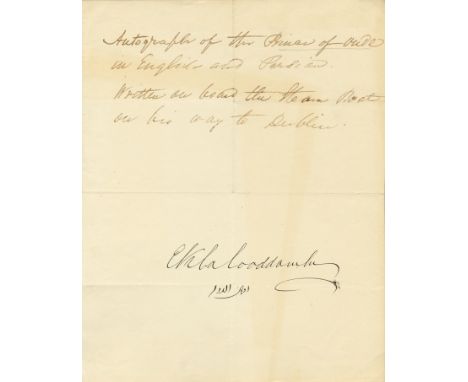 Autograph of the Prince of Oude
in English and Persian.
Written on board the Steam Boat
on his way to Dublin.